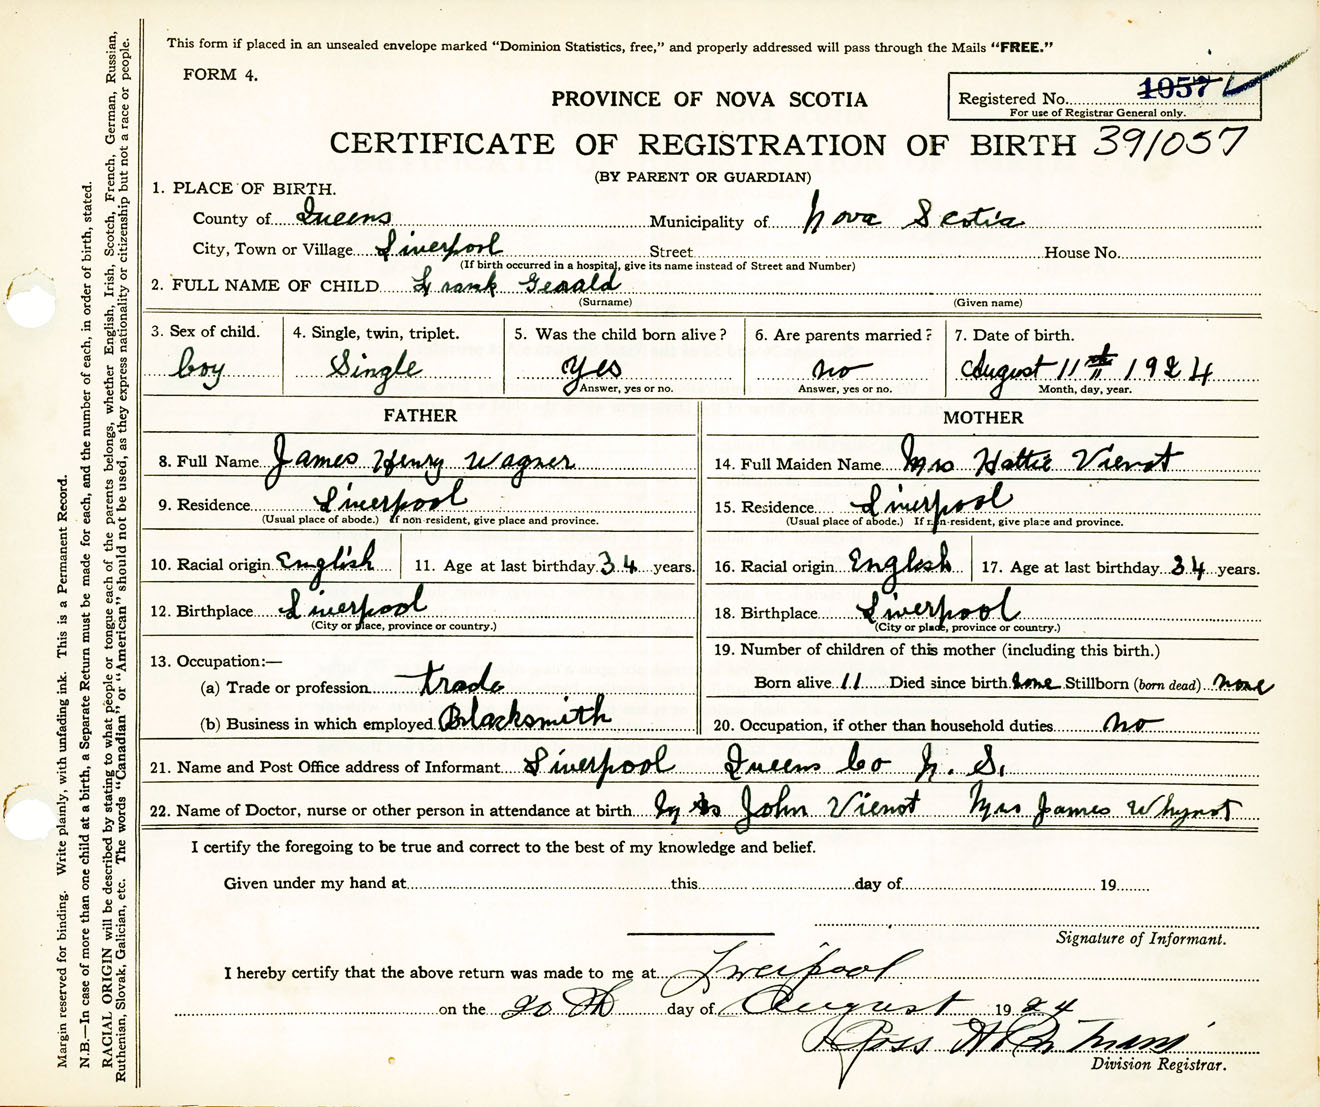 This form if placed in an unsealed envelope marked “Dominion Statistics, free,” and properly addressed will pass through the Mails “FREE.”
FORM 4.
PROVINCE OF NOVA SCOTIA
Registered No. 1057
For use of Registrar General only.
CERTIFICATE OF REGISTRATION OF BIRTH 39/057
(BY PARENT OR GUARDIAN)
1. PLACE OF BIRTH.
County of Queens Municipality of Nova Scotia
City, Town or Village Liverpool Street House No.
(If birth occurred in a hospital, give its name instead of Street and Number)
2. FULL NAME OF CHILD Frank Gerald
(Surname) (Given name)
3. Sex of child. 4. Single, twin, triplet. 5. Was the child born alive? 6. Are parents married? 7. Date of birth.
boy Single yes no August 11 1924
Answer, yes or no. Answer, yes or no. Month, day, year.
FATHER MOTHER
8. Full Name James Henry Wagner 14. Full Maiden Name Mrs Hattie Vienot
9. Residence Liverpool 15. Residence Liverpool
(Usual place of abode.) If non-resident, give place and province. (Usual place of abode.) If non-resident, give place and province.
10. Racial origin English 11. Age at last birthday 34 years. 16. Racial origin English 17. Age at last birthday 34 years.
12. Birthplace Liverpool 18. Birthplace Liverpool
(City or place, province or country.) (City or place, province or country.)
13. Occupation:— 19. Number of children of this mother (including this birth.)
(a) Trade or profession trade Born alive 11 Died since birth Stillborn (born dead) none
(b) Business in which employed Blacksmith 20. Occupation, if other than household duties no
21. Name and Post Office address of Informant Liverpool Queens Co N. S.
22. Name of Doctor, nurse or other person in attendance at birth John Vienot Mrs James Whynot
I certify the foregoing to be true and correct to the best of my knowledge and belief.
Given under my hand at this day of 19
Signature of Informant.
I hereby certify that the above return was made to me at Liverpool
on the 20th day of August 1924
Ross
Division Registrar.
Margin reserved for binding. Write plainly, with unfading ink. This is a Permanent Record.
N.B.—In case of more than one child at a birth, a Separate Return must be made for each, and the number of each, in order of birth, stated.
RACIAL ORIGIN will be described by stating to what people or tongue each of the parents belongs, whether English, Irish, Scotch, French, German, Russian,
Ruthenian, Slovak, Galician, etc. The words “Canadian” or “American” should not be used, as they express nationality or citizenship but not a race or people.